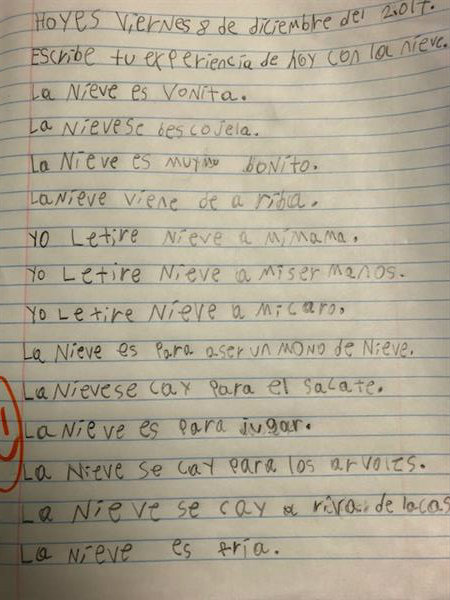 HOYES Viernes 8 de diciembre del 2017.
Escribe tu experiencia de hoy con la nieve.
La Nieve es VONita.
La Nievese
La Nieve es muy bonito.
La Nieve viene de a riba.
yo Letire Nieve a mi mama.
Yo Letire Nieve a misermanos.
Yo Letire Nieve a micaro.
La Nieve es Para aser un MONO de Nieve.
La Nievese cay para el sacate.
La Nieve es para jugar.
La Nieve se cay para los arvoles.
La Nieve se cay a riva de lacas
La Nieve es fria.
1